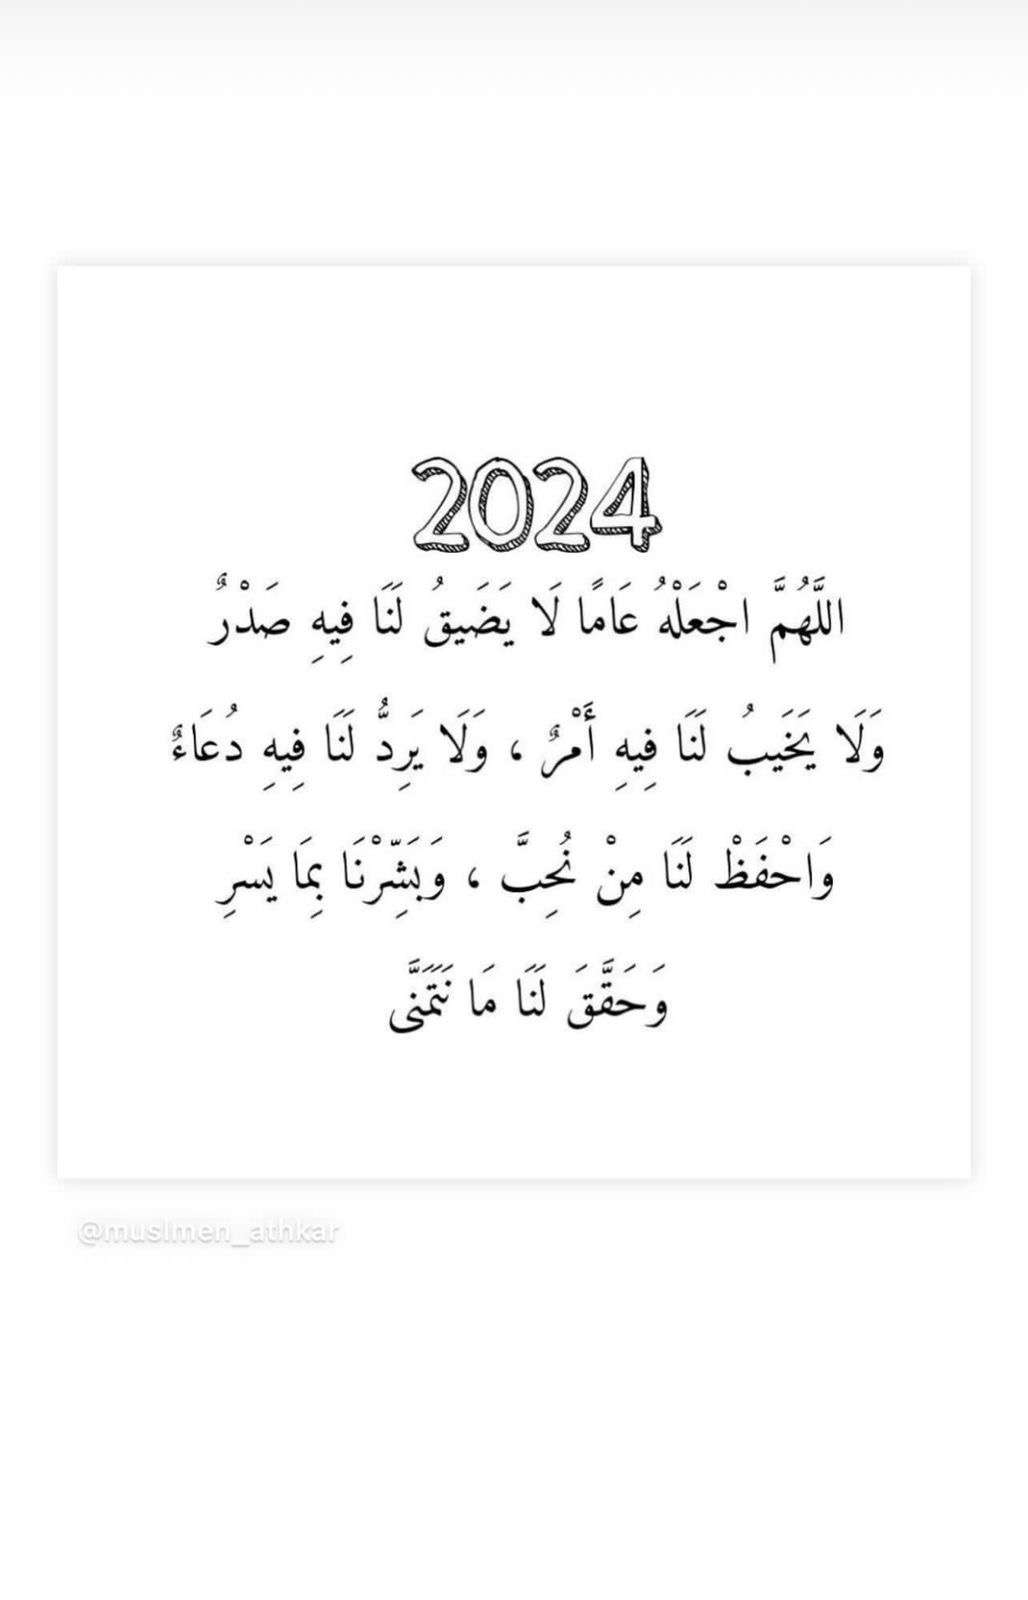 2024
اللَّهُمَّ اجْعَلْهُ عَامًا لَا يَضَيقُ لَنَا فِيهِ صَدْرٌ
وَلَا يَخَيبُ لَنَا فِيهِ أَمْرٌ ، وَلَا يَرِدُّ لَنَا فِيهِ دُعَاءٌ
وَاحْفَظْ لَنَا مِنْ نُحِبَّ ، وَبَشِّرْنَا بِمَا يَسْرِ
وَحَقَّقَ لَنَا مَا نَتَمَنَّى
@muslmen_athkar